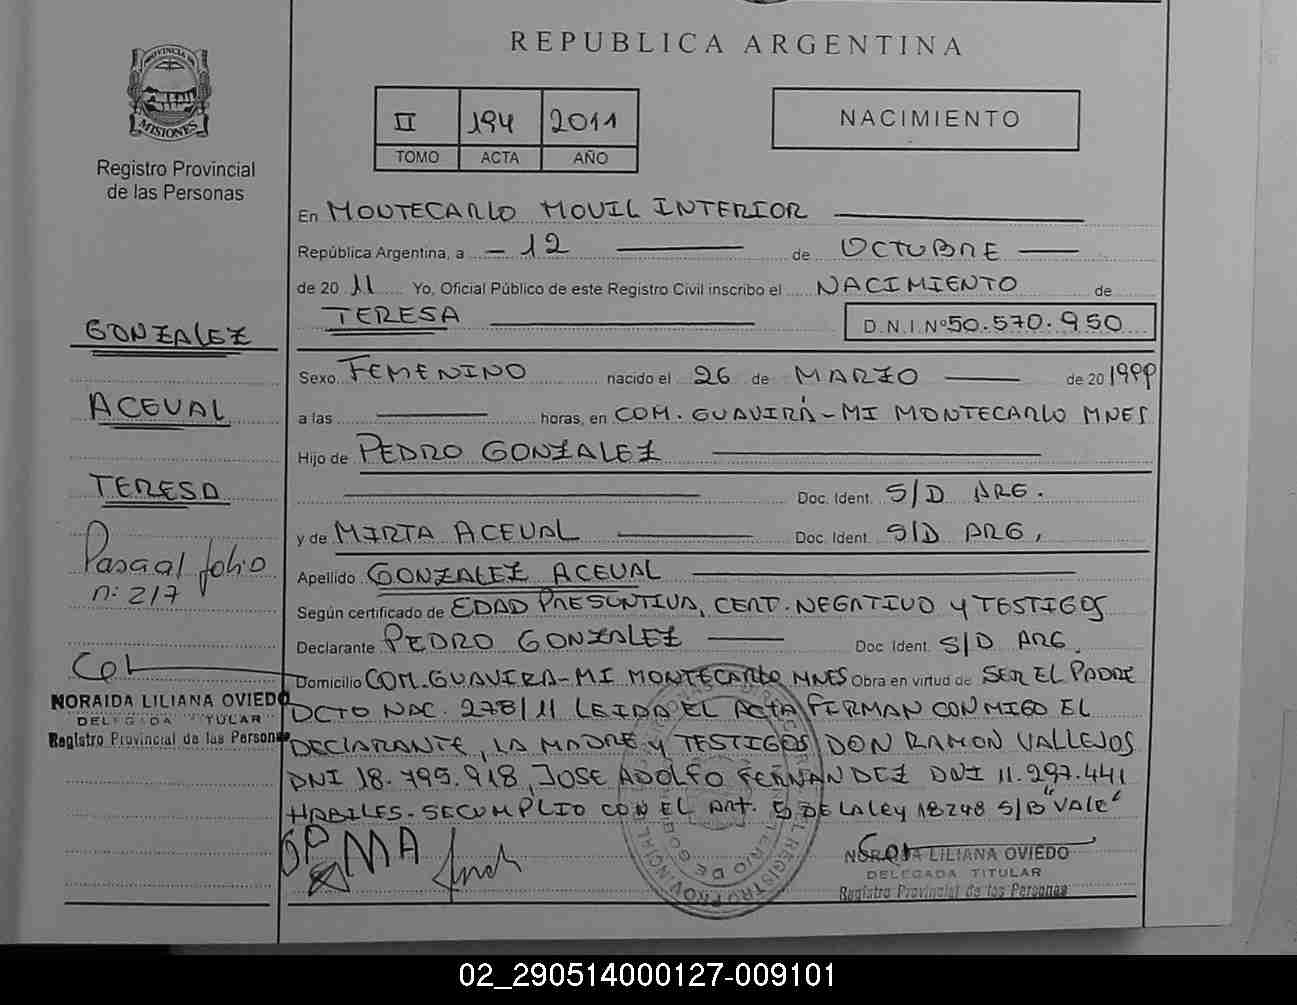 REPUBLICA ARGENTINA
PROVINCIA DE
MISIONES
Registro Provincial
de las Personas
II 194 2011
TOMO ACTA AÑO
NACIMIENTO
En MONTECARLO MOVIL INTERIOR
República Argentina, a - 12 de OCTUBRE
de 20 11 Yo, Oficial Público de este Registro Civil inscribo el NACIMIENTO de
TERESA D.N.I. Nº 50.570.950
GONZALEZ
ACEVAL
TERESA
Pasa al folio
n: 217
NORAIDA LILIANA OVIEDO
DELEGADA TITULAR
Registro Provincial de las Personas
Sexo FEMENINO nacido el 26 de MARZO de 20 1999
a las horas, en COM. GUAVIRÁ - MI MONTECARLO MNES
Hijo de PEDRO GONZALEZ
Doc. Ident. S/D ARG.
y de MIRTA ACEVAL Doc. Ident. S/D ARG.
Apellido GONZALEZ ACEVAL
Según certificado de EDAD PRESUNTIVA, CERT. NEGATIVO Y TESTIGOS
Declarante PEDRO GONZALEZ Doc. Ident. S/D ARG.
Domicilio COM. GUAVIRA - MI MONTECARLO MNES Obra en virtud de SER EL PADRE
DCTO NAC. 278/11 LEIDA EL ACTA FIRMAN CONMIGO EL
DECLARANTE, LA MADRE Y TESTIGOS DON RAMON VALLEJOS
DNI 18.795.918, JOSE ADOLFO FERNANDEZ DNI 11.297.441
HABILES. SE CUMPLIO CON EL ART. 5 DE LA LEY 18248 S/B "VALE"
MA
NORAIDA LILIANA OVIEDO
DELEGADA TITULAR
Registro Provincial de las Personas
02_290514000127-009101